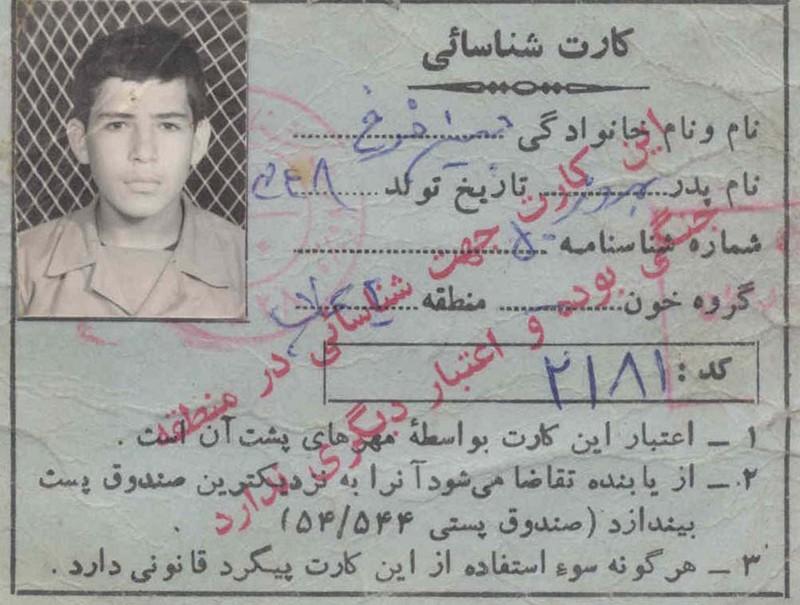 کارت شناسائی
نام و نام خانوادگی فرخ
نام پدر بهروز تاریخ تولد ۴۸
شماره شناسنامه ۵۰
گروه خون منطقه
کد: ۲۱۸۱
۱ ـ اعتبار این کارت بواسطهٔ مهرهای پشت آن است .
۲ ـ از یابنده تقاضا می‌شود آنرا به نزدیکترین صندوق پست
بیندازد (صندوق پستی ۵۴/۵۴۴)
۳ ـ هرگونه سوء استفاده از این کارت پیگرد قانونی دارد .
این کارت جهت شناسائی در منطقه
جنگی بوده و اعتبار دیگری ندارد